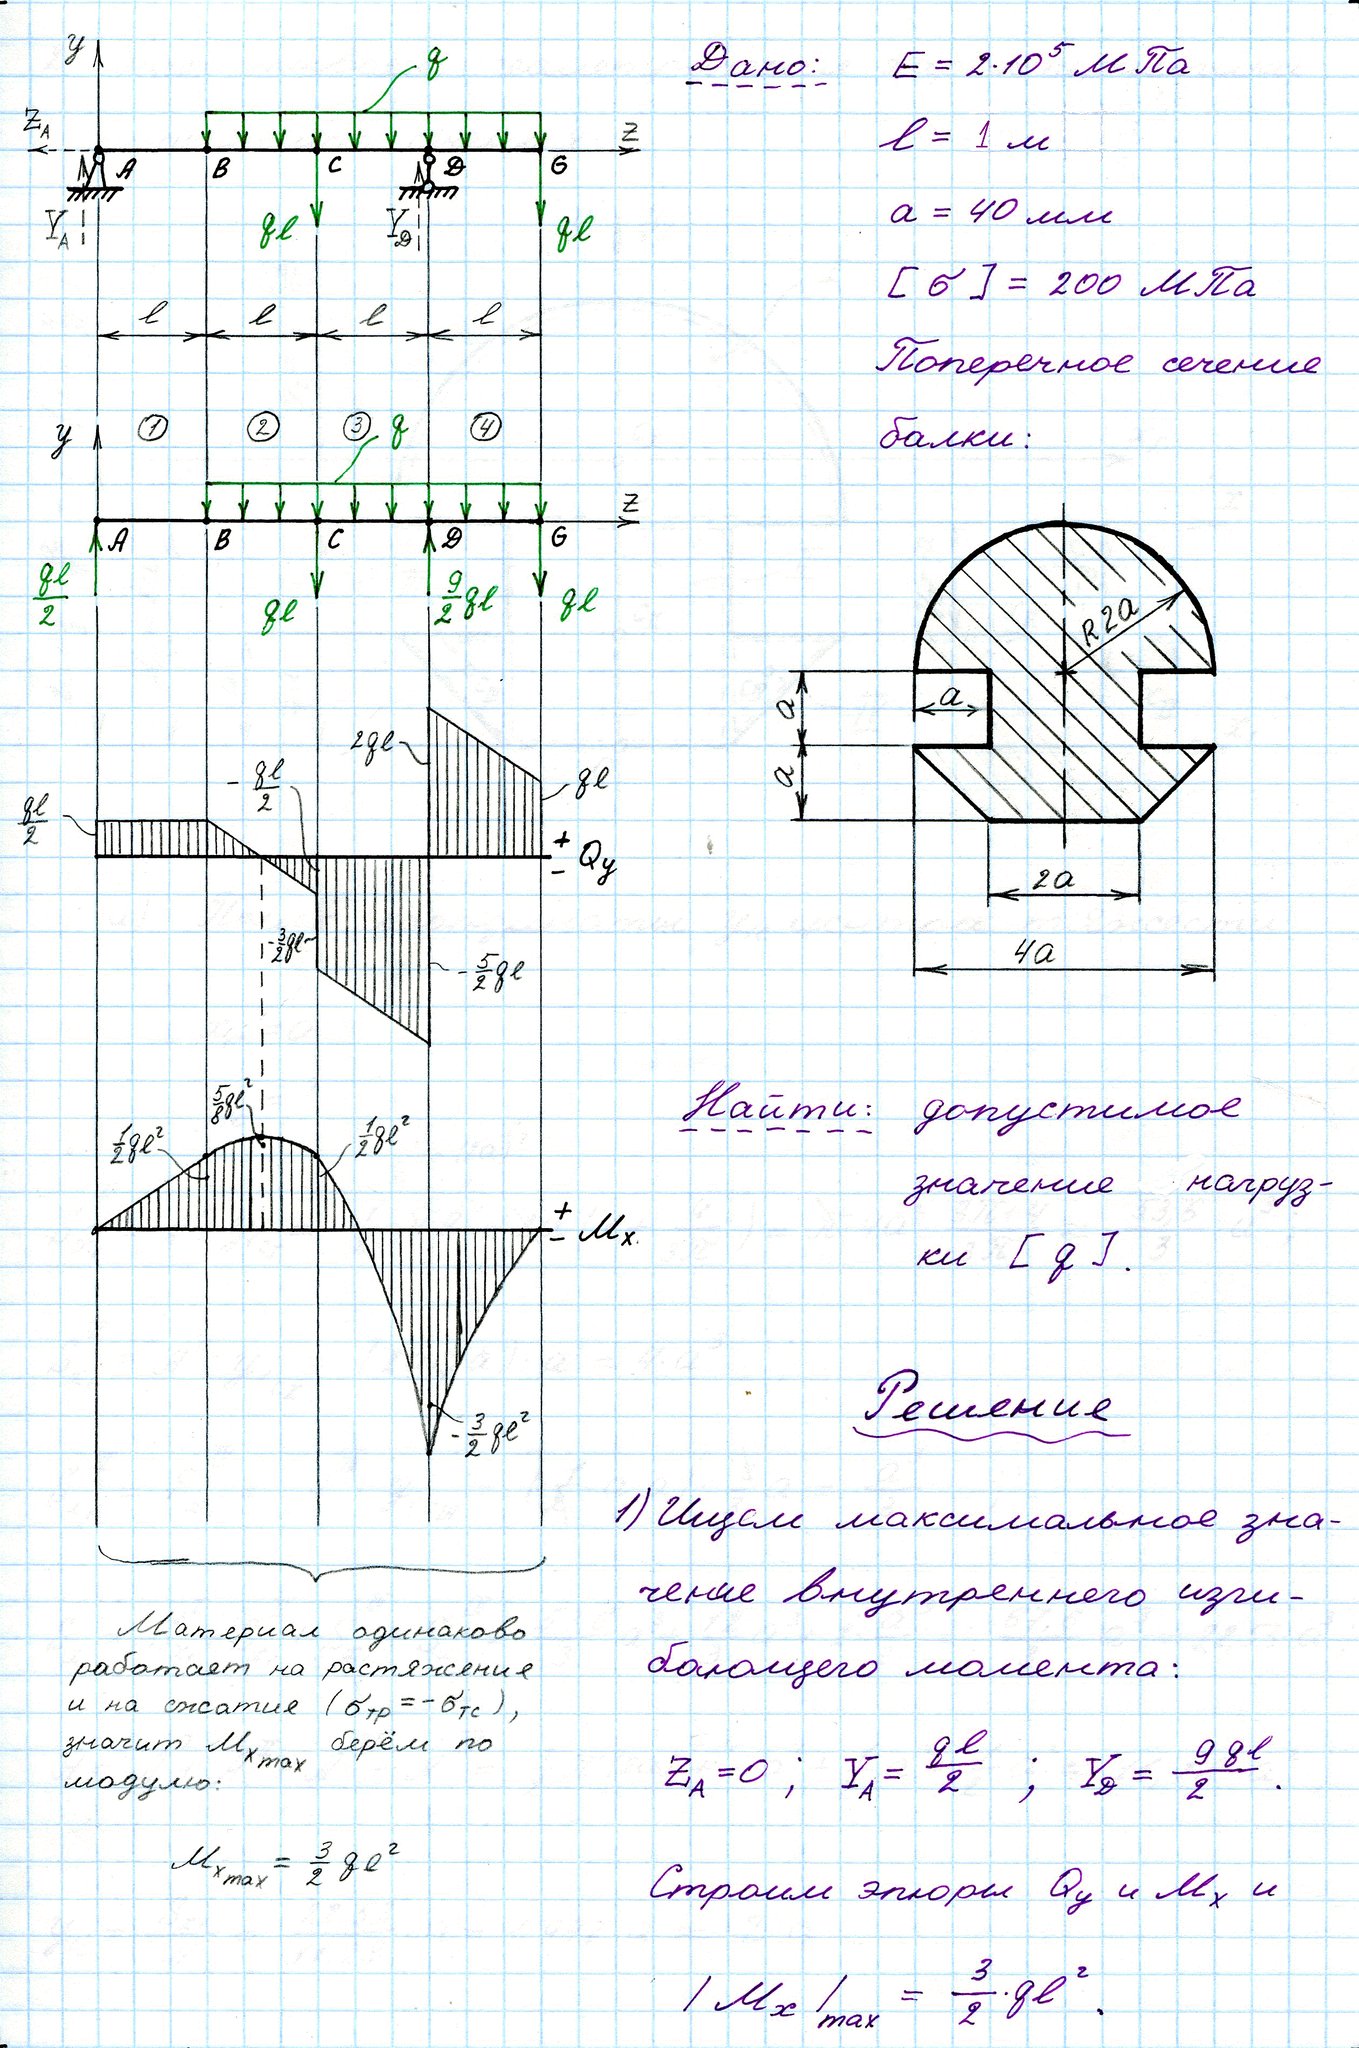 y
q
Z_A
A
B
C
D
G
z
Y_A
ql
Y_D
ql
l
l
l
l
y
1
2
3
q
4
z
A
B
C
D
G
ql/2
ql
9/2 ql
ql
2ql
-ql/2
ql
ql/2
+
-
Qy
-3/2 ql
-5/2 ql
5/8 ql²
1/2 ql²
1/2 ql²
+
-
Mx
-3/2 ql²
Материал одинаково
работает на растяжение
и на сжатие (σтр = -σтс),
значит Mx max берём по
модулю:
Mx max = 3/2 ql²
Дано: E = 2·10⁵ МПа
l = 1 м
a = 40 мм
[σ] = 200 МПа
Поперечное сечение
балки:
R2a
a
a
a
2a
4a
Найти: допустимое
значение нагруз-
ки [q].
Решение
1) Ищем максимальное зна-
чение внутреннего изги-
бающего момента:
Z_A = 0; Y_A = ql/2; Y_D = 9ql/2.
Строим эпюры Qy и Mx и
|Mx|max = 3/2·ql².